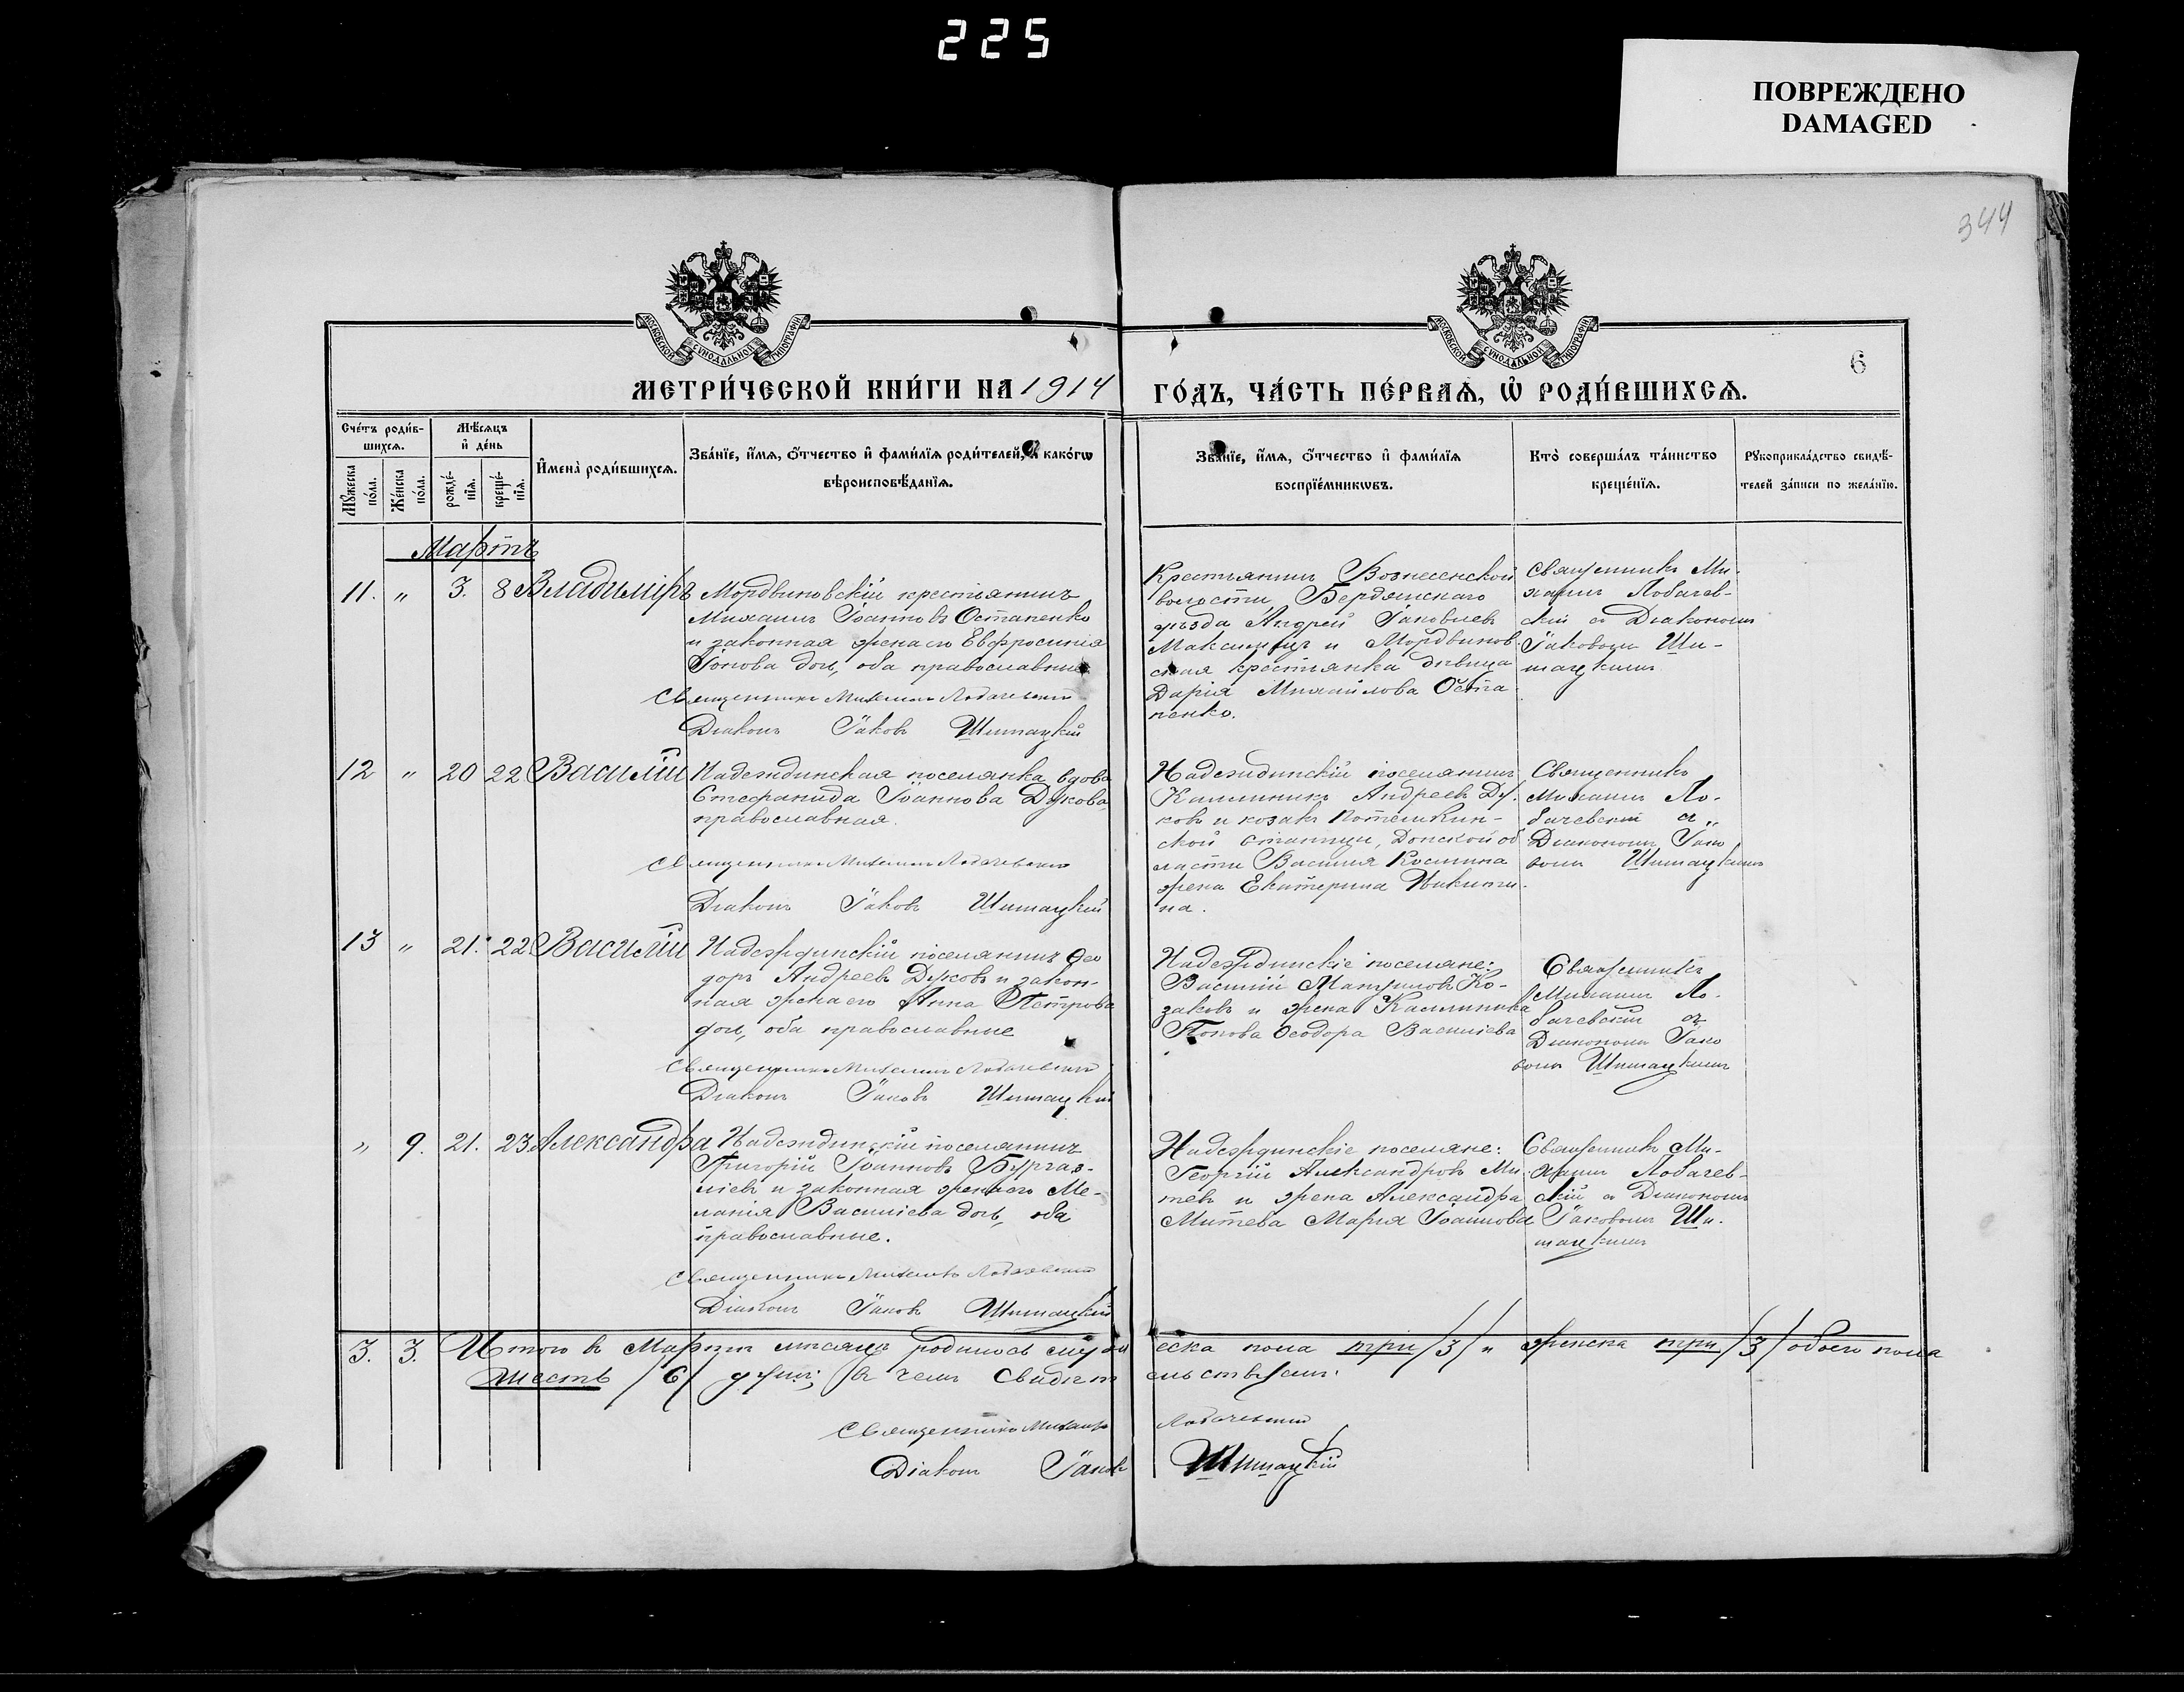 225
ПОВРЕЖДЕНО
DAMAGED
344
МОСКОВСКОЙ СѴНОДАЛЬНОЙ ТИПОГРАФІИ
МОСКОВСКОЙ СѴНОДАЛЬНОЙ ТИПОГРАФІИ
6
МЕТРИ́ЧЕСКОЙ КНИ́ГИ НА 1914 ГО́ДЪ, ЧА́СТЬ ПЕ́РВАѦ, Ѡ҆ РОДИ́ВШИХСѦ.
Сче́тъ роди́в-
шихсѧ.
Мѣ́сѧцъ
и҆ де́нь
Мꙋ́жеска
по́ла.
Же́нска
по́ла.
рожде́-
нїѧ.
креще́-
нїѧ.
И҆мена̀ роди́вшихсѧ.
Зва́нїе, и҆́мѧ, ѻ҆́тчество и҆ фами́лїѧ роди́телей, и҆ како́гѡ
вѣроисповѣ́данїѧ.
Зва́нїе, и҆́мѧ, ѻ҆́тчество и҆ фами́лїѧ
воспрїе́мникѡвъ.
Кто̀ соверша́лъ та́инство
креще́нїѧ.
Рꙋкоприкла́дство свидѣ́-
телей за́писи по жела́нїю.
Мартъ
11. " 3. 8 Владиміръ
Мордвиновскій крестьянинъ
Михаилъ Іоанновъ Остапенко
и законная жена его Евфросинія
Іонова дочь, оба православные
Священникъ Михаилъ Лобачевскій
Діаконъ Іаковъ Шишацкій
Крестьянинъ Вознесенской
волости, Бердянскаго
уѣзда Андрей Іаковлевъ
и Мордвинов-
ская крестьянка дѣвица
Дарія Михаилова Оста
пенко.
Священникъ Ми-
хаилъ Лобачев-
скій съ Діакономъ
Іаковомъ Ши-
шацкимъ
12 " 20 22 Василій
Надеждинская поселянка, вдова
Стефанида Іоаннова Дукова,
православная.
Священникъ Михаилъ Лобачевскій
Діаконъ Іаковъ Шишацкій
Надеждинскій поселянинъ
Каллиникъ Андреевъ Ду-
ковъ и козака Потемкин-
ской станицы, Донской об
ласти Василія Косткина
жена Екатерина Никити-
на.
Священникъ
Михаилъ Ло-
бачевскій съ
Діакономъ Іако
вомъ Шишацкимъ
13 " 21. 22 Василій
Надеждинскій поселянинъ Ѳео
доръ Андреевъ Дуковъ и закон-
ная жена его Анна Петрова
дочь, оба православные
Священникъ Михаилъ Лобачевскій
Діаконъ Іаковъ Шишацкій
Надеждинскіе поселяне:
Василій Ко-
заковъ и жена Каллиника
Попова Ѳеодора Василіева
Священникъ
Михаилъ Ло-
бачевскій съ
Діакономъ Іако
вомъ Шишацкимъ
" 9. 21. 23 Александра
Надеждинскій поселянинъ
Григорій Іоанновъ Бургаз-
ліевъ и законная жена его Ме-
ланія Василіева дочь, оба
православные.
Священникъ Михаилъ Лобачевскій
Діаконъ Іаковъ Шишацкій
Надеждинскіе поселяне:
Георгій Александровъ Ми-
тевъ и жена Александра
Митева Марія Іоаннова
Священникъ Ми-
хаилъ Лобачев-
скій съ Діакономъ
Іаковомъ Ши-
шацкимъ
3. 3. Итого въ Мартѣ мѣсяцѣ родилось мужеска пола три /3/ и женска три /3/ обоего пола
шесть /6/ душъ; въ чемъ свидѣтельствуемъ:
Священникъ Михаилъ Лобачевскій
Діаконъ Іаковъ Шишацкій